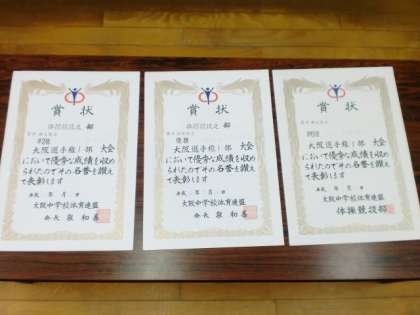 賞状
大阪選手権1部 大会
において優秀な成績を収め
られたのでその名誉を讃え
て表彰します
年 月 日
大阪中学校体育連盟
会長 泉 和善
賞状
優勝
大阪選手権1部 大会
において優秀な成績を収め
られたのでその名誉を讃え
て表彰します
年 月 日
大阪中学校体育連盟
会長 泉 和善
賞状
大阪選手権1部 大会
において優秀な成績を収め
られたのでその名誉を讃え
て表彰します
年 月 日
大阪中学校体育連盟
体操競技部